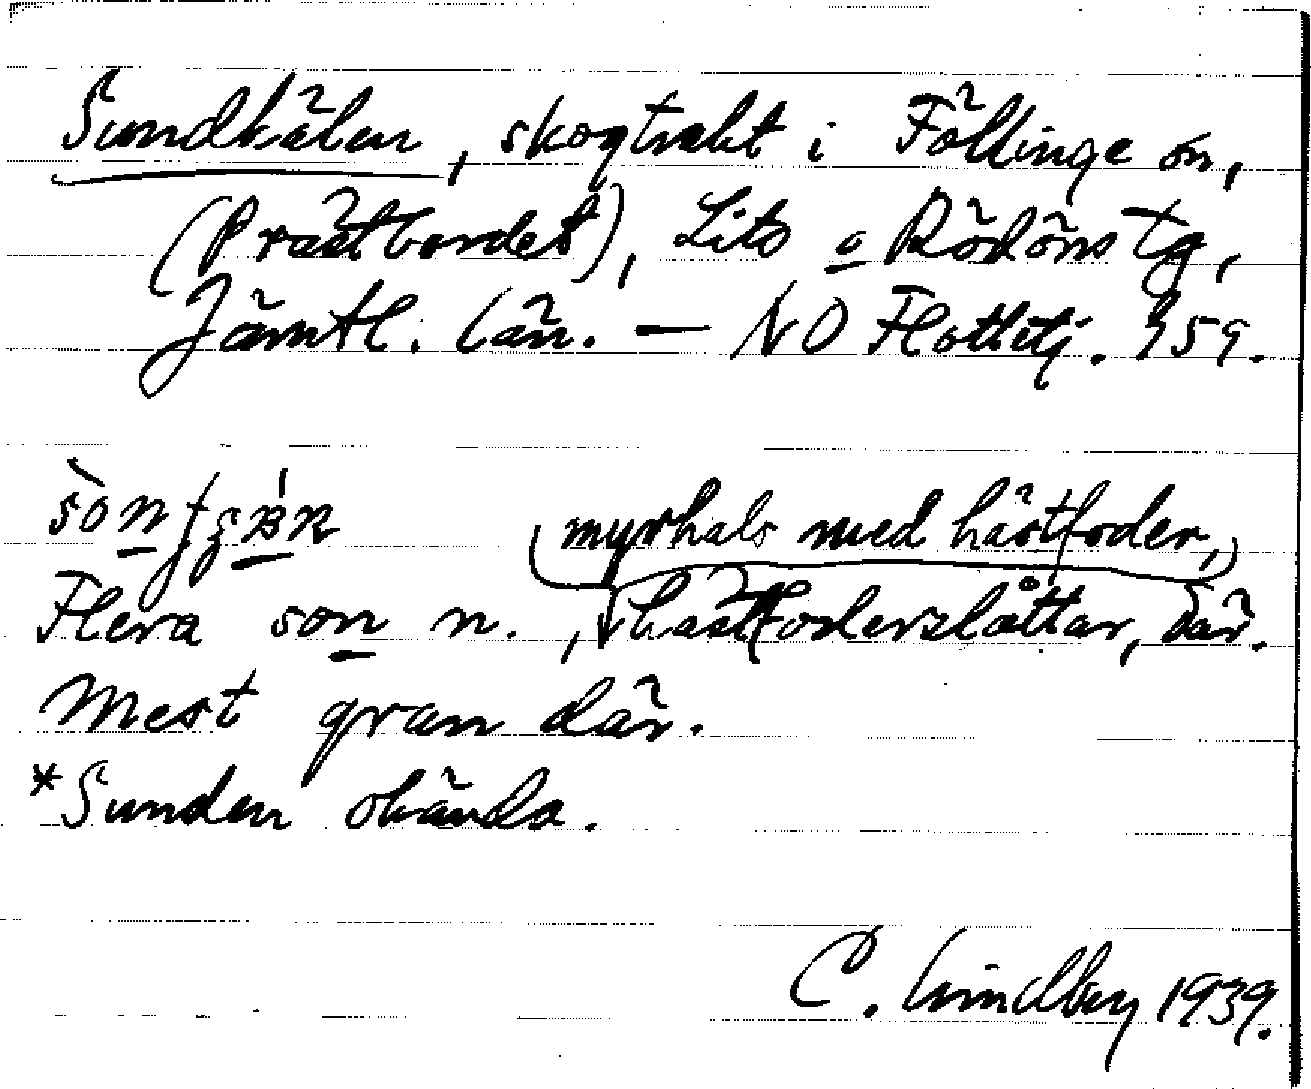 Sundkälen, skogtrakt i Föllinge sn,
(Prästbordet), Lits o Rödöns tg,
Jämtl. län. — NO Flottitj. 959.
myrhals med hästfoder,
Flera son n., hästfoderslåttar, där.
Mest gran där.
*Sunden okända.
C. Lindberg 1939.